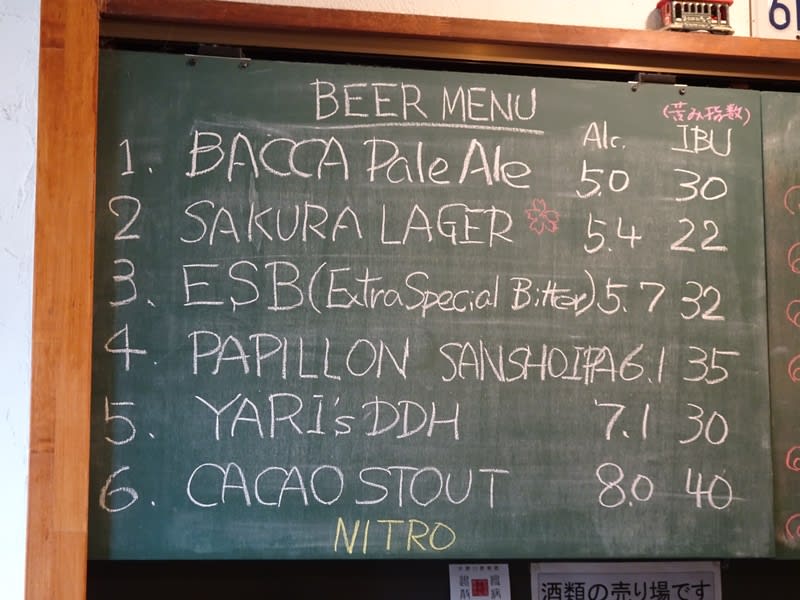 BEER MENU
(苦み指数)
Alc. IBU
1. BACCA Pale Ale 5.0 30
2 SAKURA LAGER 5.4 22
3. ESB (Extra Special Bitter) 5.7 32
4. PAPILLON SANSHO IPA 6.1 35
5. YARI's DDH 7.1 30
6. CACAO STOUT 8.0 40
NITRO
酒類の売り場です